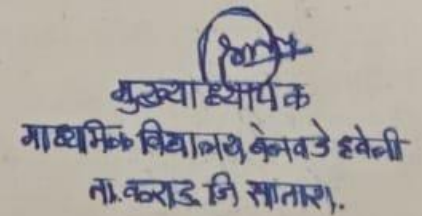 मुख्याध्यापक
माध्यमिक विद्यालय, बेलवडे हवेली
ता. कराड जि सातारा.